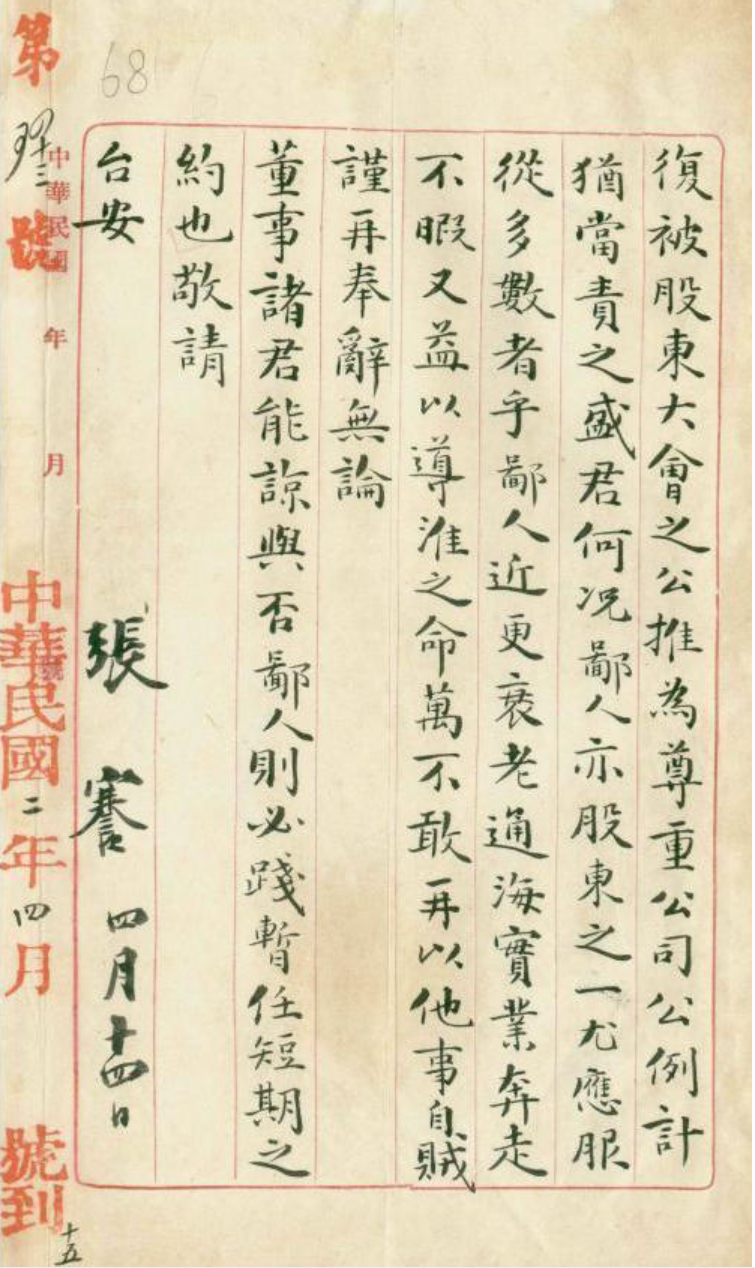 復被股東大會之公推為尊重公司公例計
猶當責之盛君何况鄙人亦股東之一尤應服
從多數者乎鄙人近更衰老通海實業奔走
不暇又益以導淮之命萬不敢再以他事自賊
謹再奉辭無論
董事諸君能諒與否鄙人則必踐暫任短期之
約也敬請
台安
張謇 四月十四日
中華民國 年 月 號
第 號
中華民國二年四月 號到
十五
68